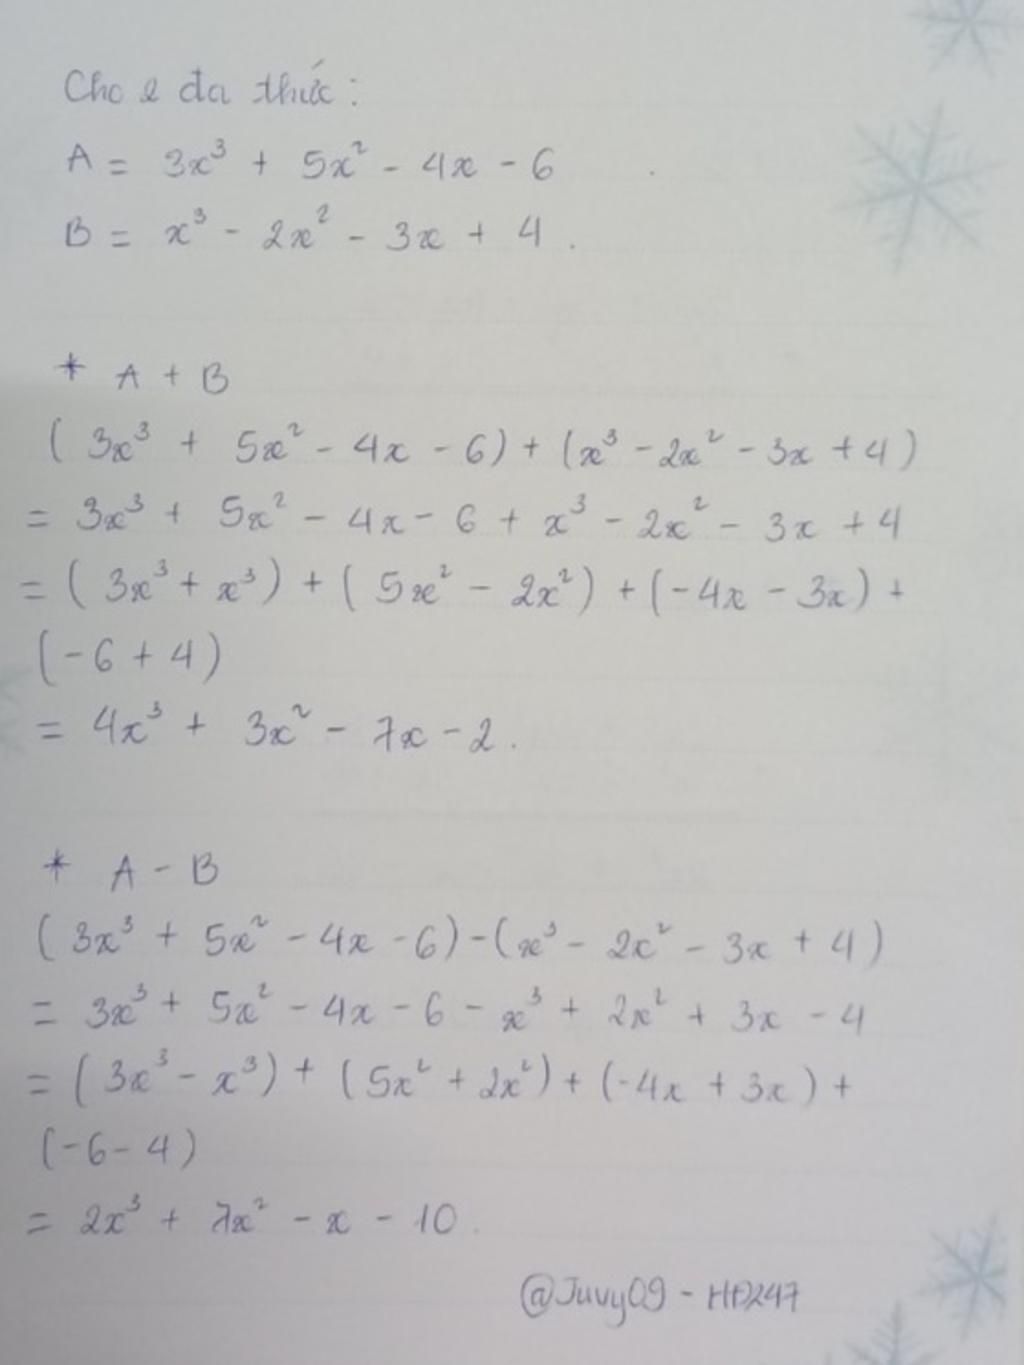 Cho 2 đa thức:
A = 3x³ + 5x² - 4x - 6
B = x³ - 2x² - 3x + 4.
* A + B
(3x³ + 5x² - 4x - 6) + (x³ - 2x² - 3x + 4)
= 3x³ + 5x² - 4x - 6 + x³ - 2x² - 3x + 4
= (3x³ + x³) + (5x² - 2x²) + (-4x - 3x) +
(-6 + 4)
= 4x³ + 3x² - 7x - 2.
* A - B
(3x³ + 5x² - 4x - 6) - (x³ - 2x² - 3x + 4)
= 3x³ + 5x² - 4x - 6 - x³ + 2x² + 3x - 4
= (3x³ - x³) + (5x² + 2x²) + (-4x + 3x) +
(-6 - 4)
= 2x³ + 7x² - x - 10.
@Juvy09 - HĐ247